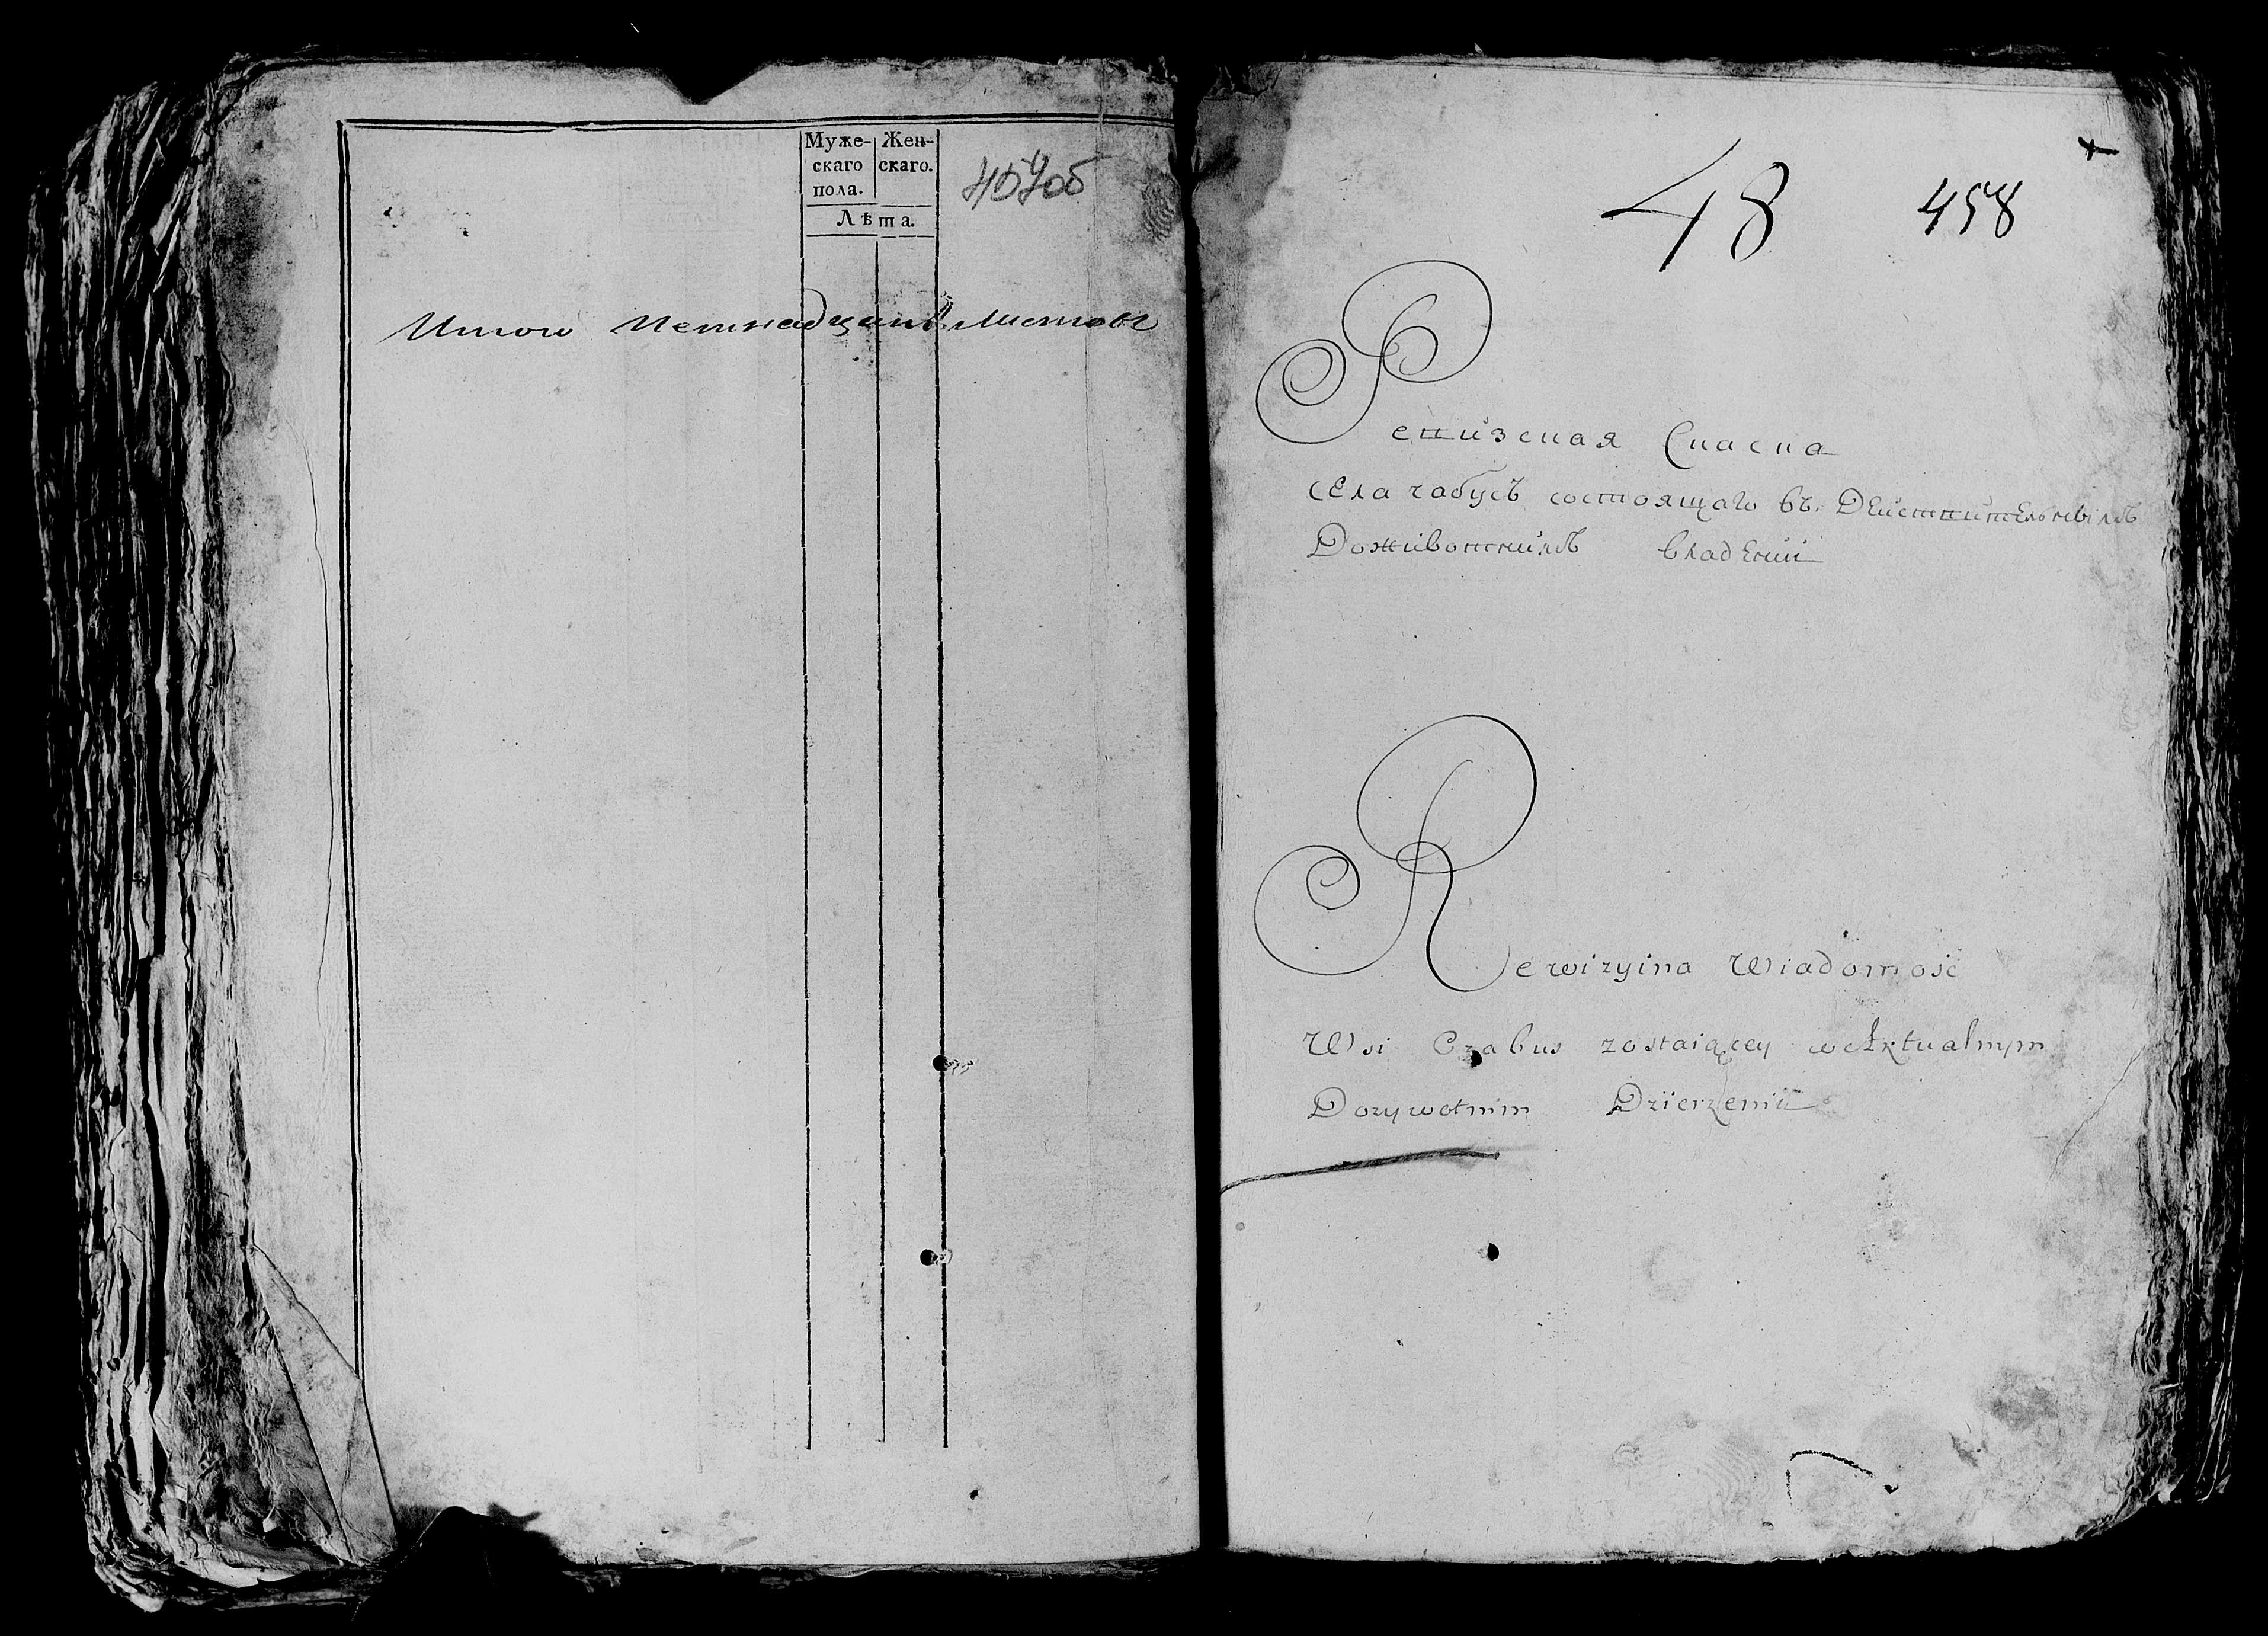 Муже-
скаго
пола.
Жен-
скаго.
Лѣта.
457об
Итого Петнадцать листовъ
48
458
Ревизская Скаска
Села чабусъ состоящаго въ Действительнымъ
Доживотнимъ владении
Rewizyina Wiadomość
Wsi Czabus zostaiącey w Aktualnym
Dozywotnim Dzierzeniu